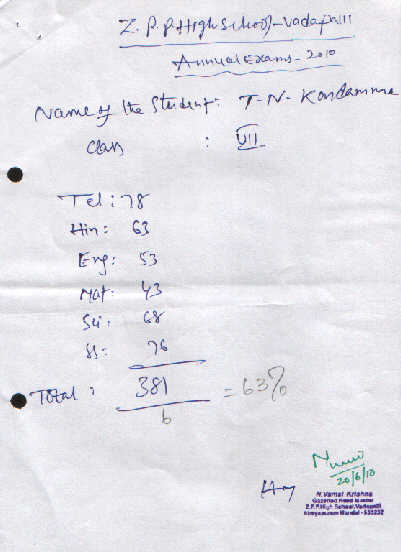 Z.P.P.High School-Vadapalli
Annual Exams-2010
Name of the Student: T.N. Kondamma
Class : VII
Tel: 78
Hin: 63
Eng: 53
Mat: 43
Sci: 68
SS: 76
Total: 381 = 63%
6
20/6/10
N.Vamsi Krishna
Gazetted Head Master
Z.P.P.High School,Vadapalli
Mandal - 533232